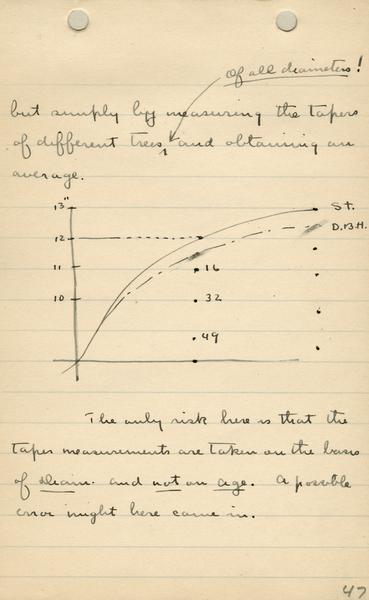 of all diameters!
but simply by measuring the tapers
of different trees, and obtaining an
average.
13"
St.
D.B.H.
12
11
16
10
32
49
The only risk here is that the
taper measurements are taken on the basis
of diam. and not on age. A possible
error might here come in.
47